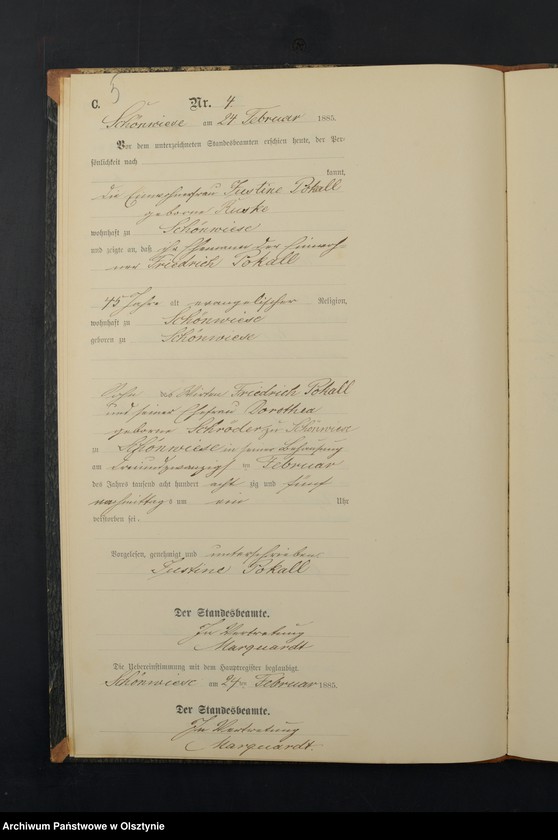 C. 5 Nr. 4
Schönwiese am 24 Februar 1885.
Vor dem unterzeichneten Standesbeamten erschien heute, der Per-
sönlichkeit nach
kannt,
die Einwohnerfrau Justine Pokall
geborne Ruske
wohnhaft zu Schönwiese
und zeigte an, daß ihr Ehemann der Einwoh-
ner Friedrich Pokall
45 Jahre alt evangelischer Religion,
wohnhaft zu Schönwiese
geboren zu Schönwiese
Sohn des Wirten Friedrich Pokall
und seiner Ehefrau Dorothea
geborne Schröder zu Schönwiese
zu Schönwiese in seiner Behausung
am dreiundzwanzigsten Februar
des Jahres tausend acht hundert acht zig und fünf
nachmittags um ein Uhr
verstorben sei.
Vorgelesen, genehmigt und unterschrieben
Justine Pokall
Der Standesbeamte.
In Vertretung
Marquardt
Die Uebereinstimmung mit dem Hauptregister beglaubigt.
Schönwiese am 24ten Februar 1885.
Der Standesbeamte.
In Vertretung
Marquardt.
Archiwum Państwowe w Olsztynie